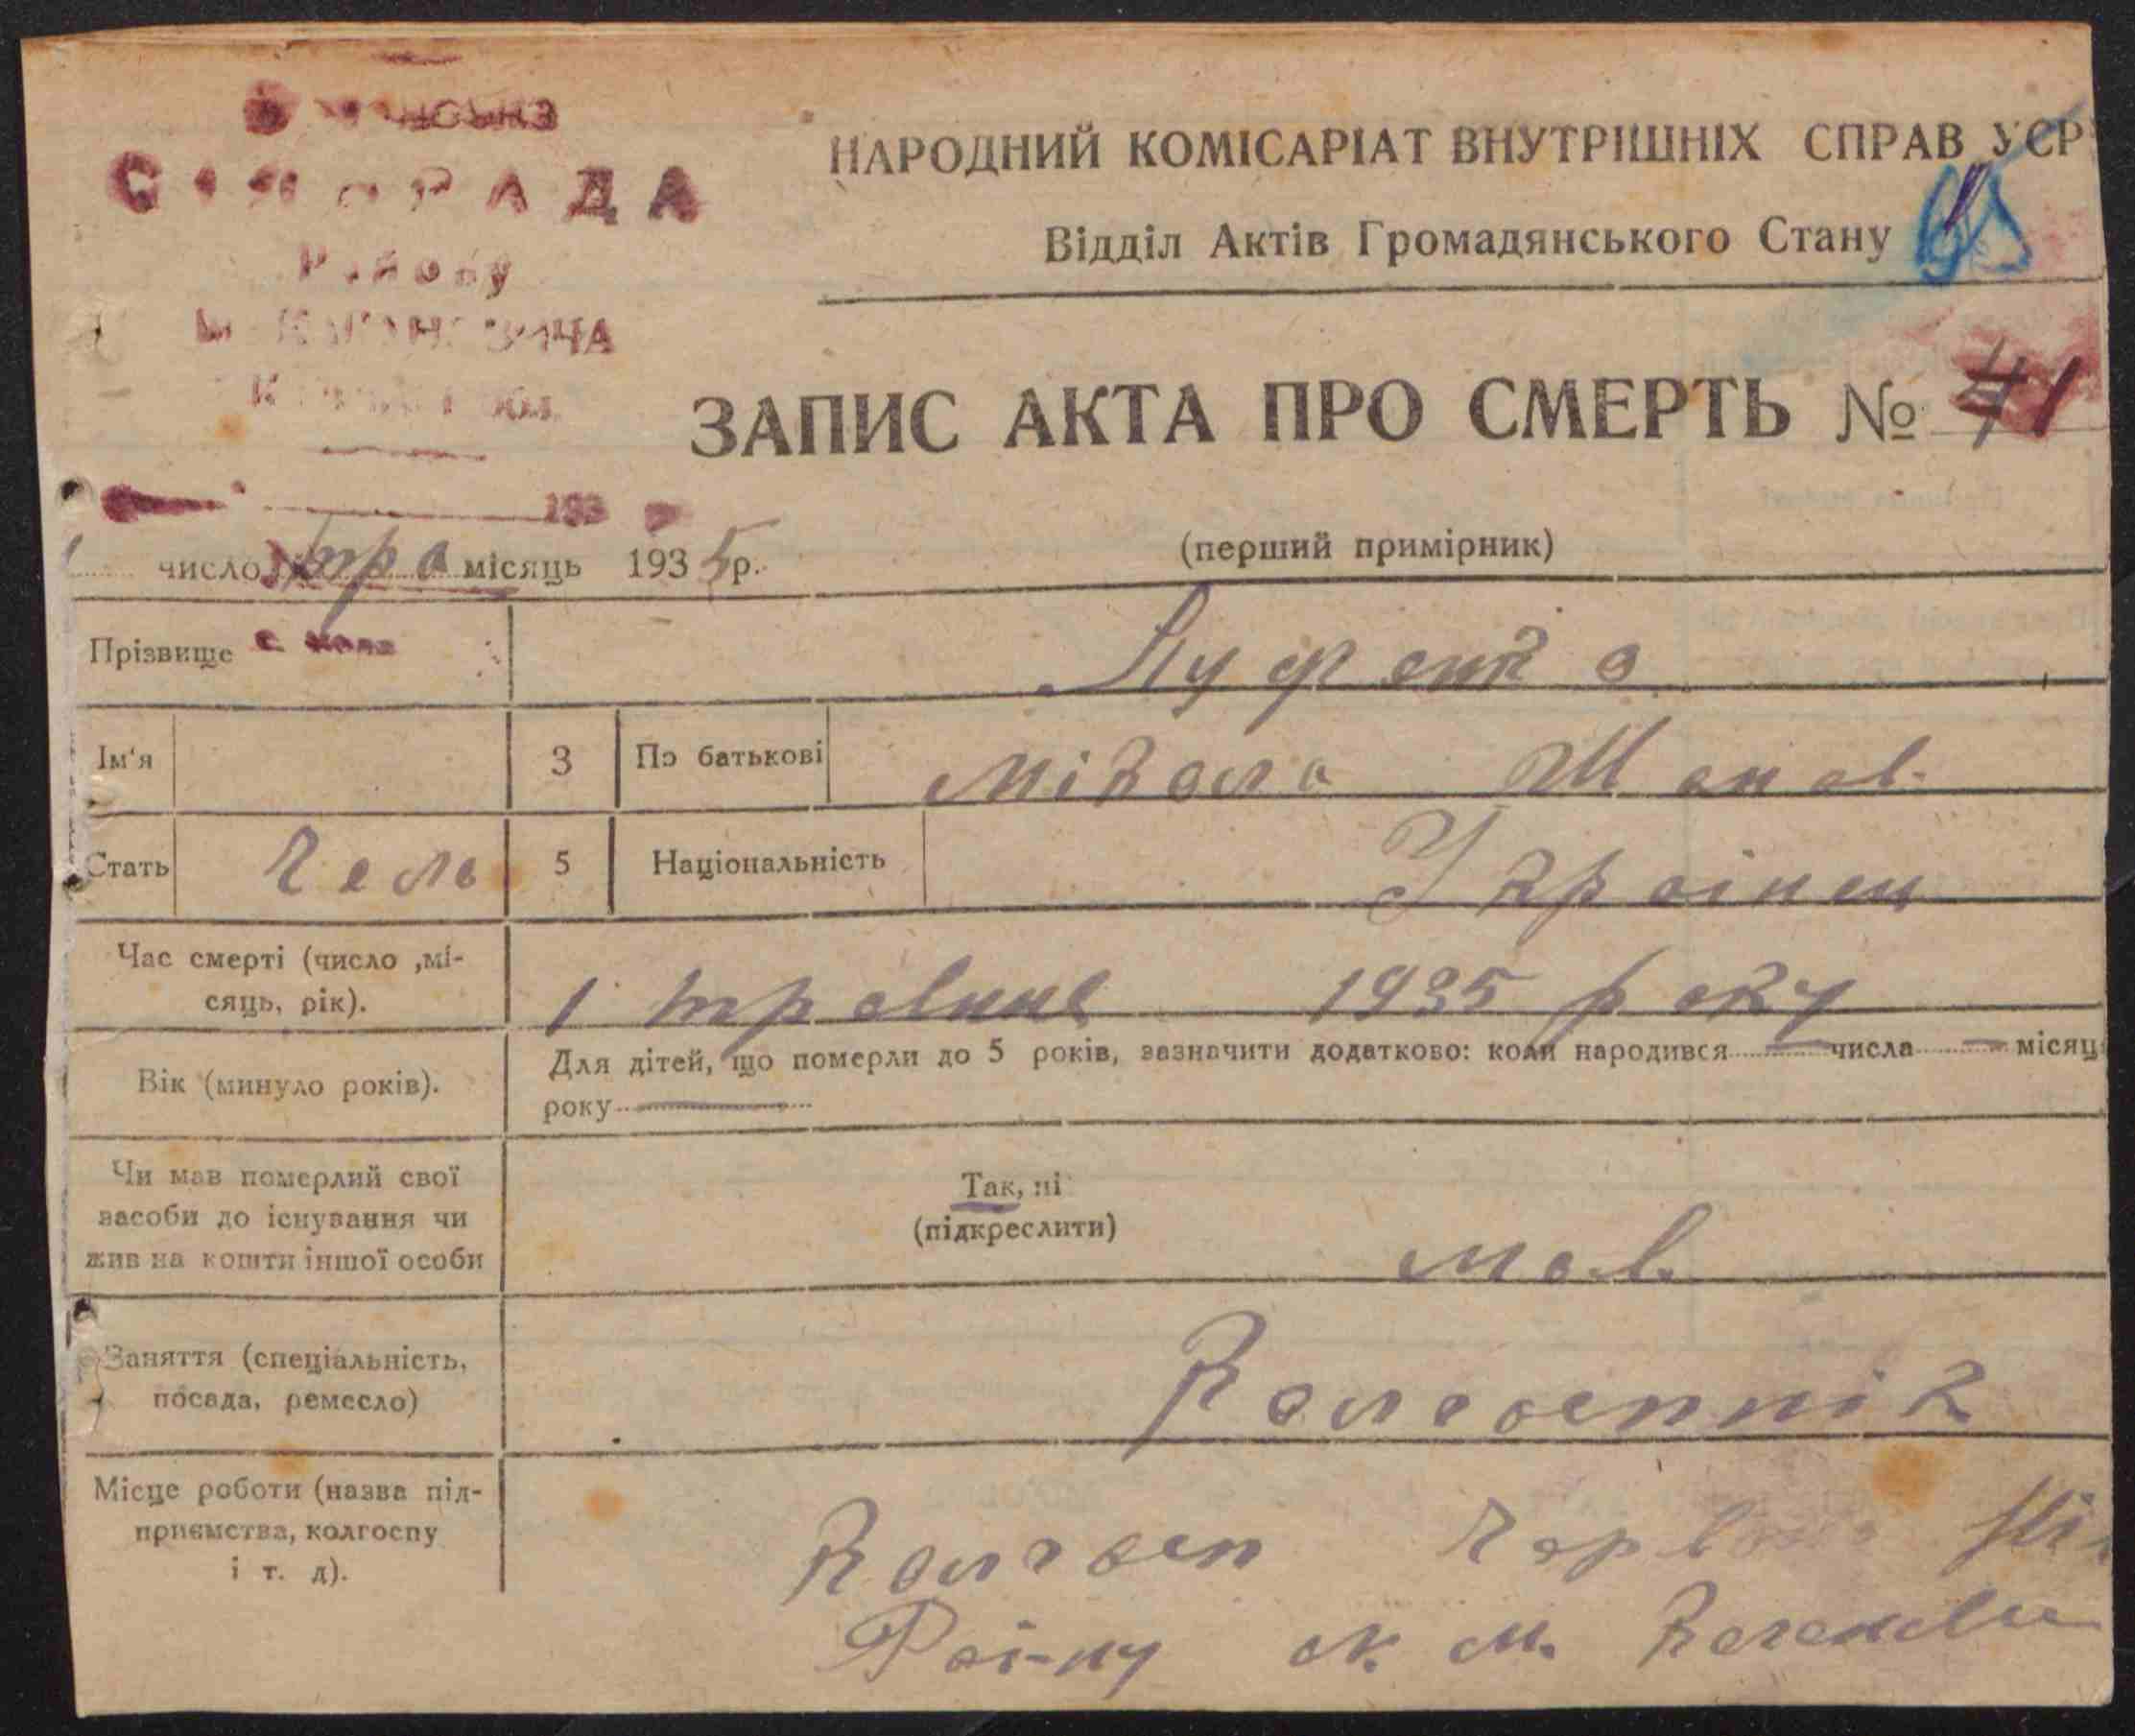 НАРОДНИЙ КОМІСАРІАТ ВНУТРІШНІХ СПРАВ УСР
Відділ Актів Громадянського Стану
РАДА
Району
ЗАПИС АКТА ПРО СМЕРТЬ № 71
(перший примірник)
1 число тра місяць 1935 р.
Прізвище
Ім'я 3 По батькові Мікола
Стать Чель 5 Національність Українец
Час смерті (число ,мі-
сяць, рік).
1 травння 1935 року
Вік (минуло років).
Для дітей, що померли до 5 років, зазначити додатково: коли народився — числа — місяц
року —
Чи мав померлий свої
засоби до існування чи
жив на кошти іншої особи
Так, ні
(підкреслити)
мав
Заняття (спеціальність,
посада, ремесло)
Колгоспнік
Місце роботи (назва під-
приємства, колгоспу
і т. д).
Колгосп